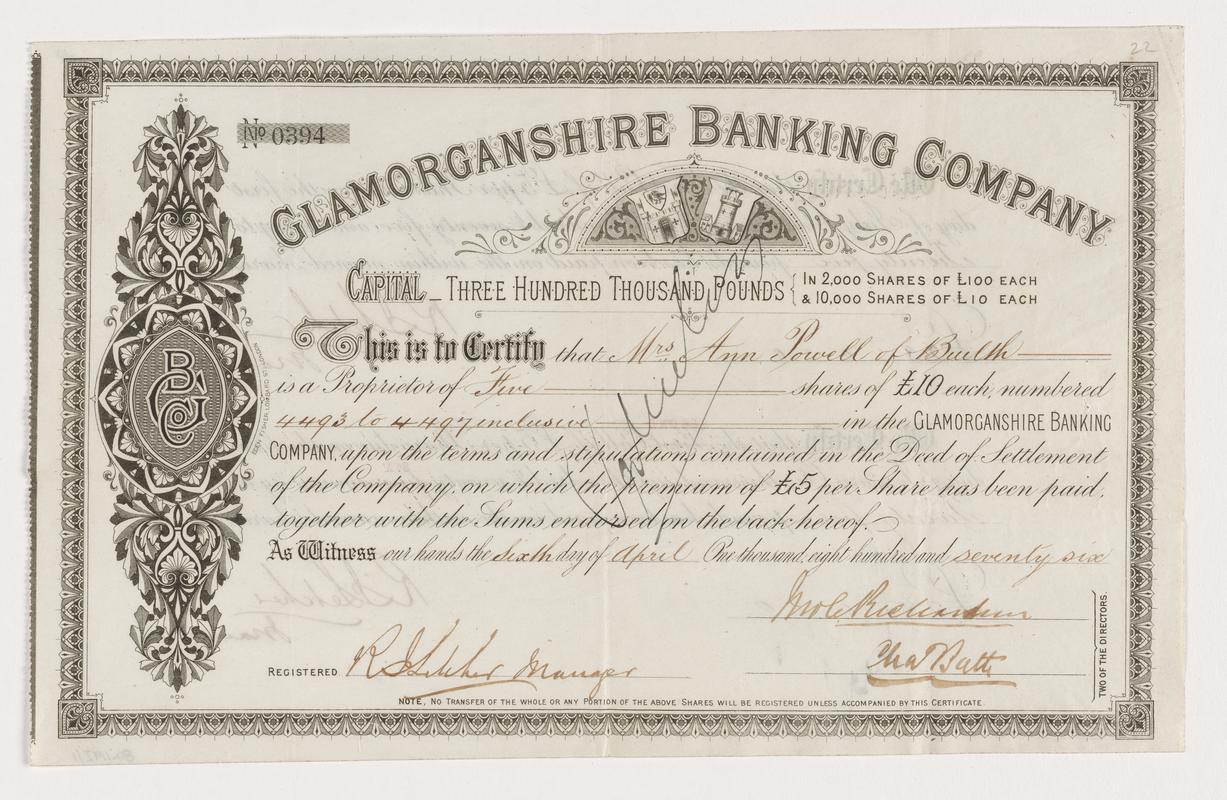 22
No 0394
GLAMORGANSHIRE BANKING COMPANY
CAPITAL _ THREE HUNDRED THOUSAND POUNDS { IN 2,000 SHARES OF £100 EACH
& 10,000 SHARES OF £10 EACH
This is to Certify that Mrs. Ann Powell of Builth
is a Proprietor of Five shares of £10 each, numbered
4493 to 4497 inclusive in the GLAMORGANSHIRE BANKING
COMPANY, upon the terms and stipulations contained in the Deed of Settlement
of the Company, on which the premium of £5 per Share has been paid,
together with the Sums endorsed on the back hereof.
As Witness our hands the Sixth day of April One thousand, eight hundred and seventy six
Cancelled
Chas Bath
REGISTERED Manager
TWO OF THE DIRECTORS.
NOTE, NO TRANSFER OF THE WHOLE OR ANY PORTION OF THE ABOVE SHARES WILL BE REGISTERED UNLESS ACCOMPANIED BY THIS CERTIFICATE.